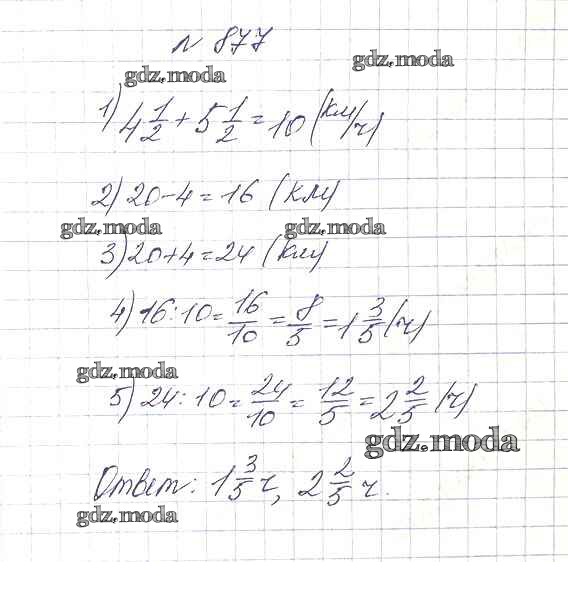 № 877
gdz.moda
gdz.moda
1) 4 1/2 + 5 1/2 = 10 (км/ч)
2) 20-4 = 16 (км)
gdz.moda gdz.moda
3) 20+4 = 24 (км)
4) 16:10 = 16/10 = 8/5 = 1 3/5 (ч)
gdz.moda
5) 24:10 = 24/10 = 12/5 = 2 2/5 (ч)
gdz.moda
Ответ: 1 3/5 ч, 2 2/5 ч.
gdz.moda